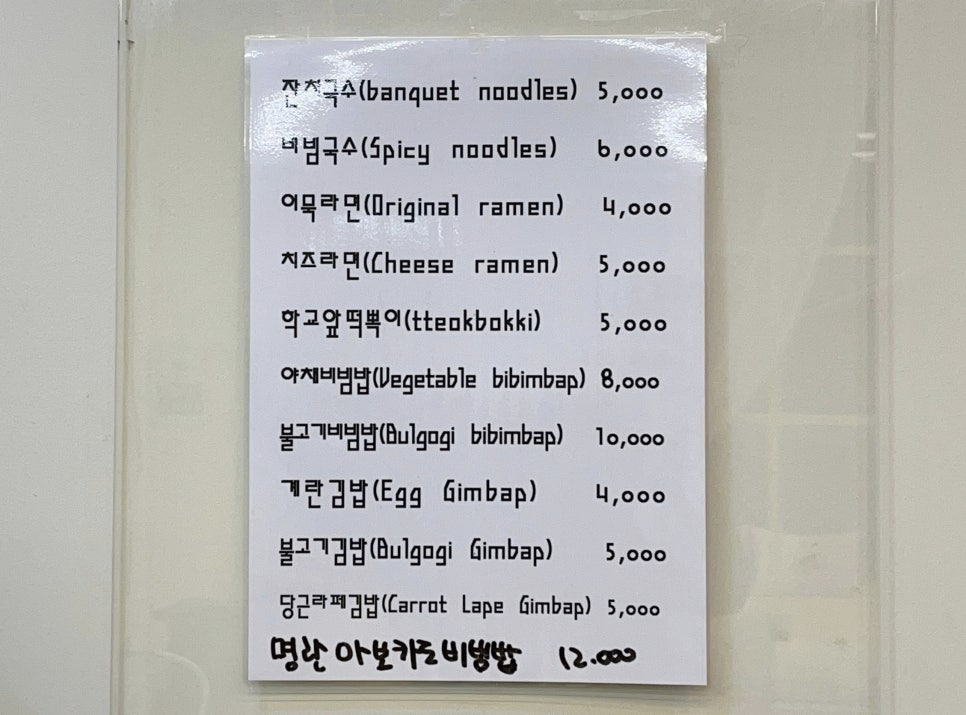 잔치국수(banquet noodles) 5,000
비빔국수(Spicy noodles) 6,000
어묵라면(Original ramen) 4,000
치즈라면(Cheese ramen) 5,000
학교앞떡볶이(tteokbokki) 5,000
야채비빔밥(Vegetable bibimbap) 8,000
불고기비빔밥(Bulgogi bibimbap) 10,000
계란김밥(Egg Gimbap) 4,000
불고기김밥(Bulgogi Gimbap) 5,000
당근라페김밥(Carrot Lape Gimbap) 5,000
명란 아보카도 비빔밥 12.000